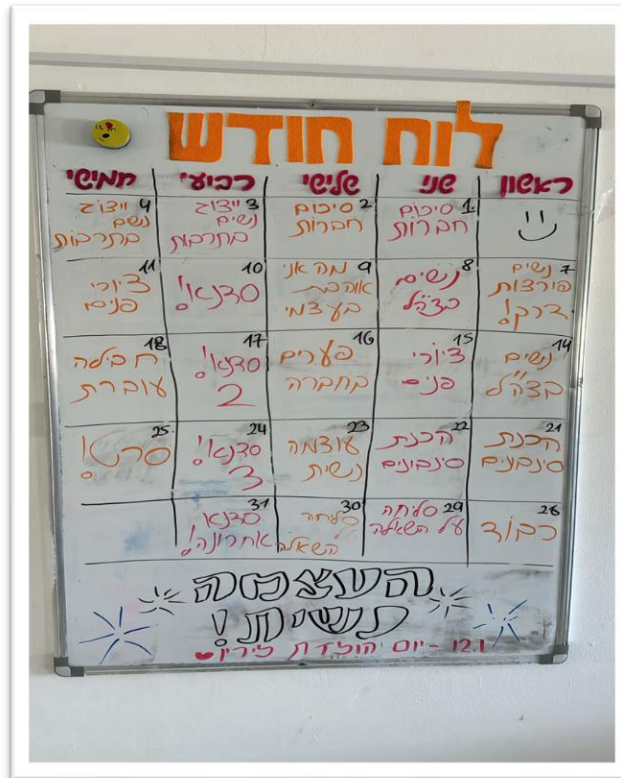 לוח חודש
ראשון שני שלישי רביעי חמישי
1 סיכום
חברות
2 סיכום
חברות
3 ייצוג
נשים
בתרבות
4 ייצוג
נשים
בתרבות
7 נשים
פורצות
דרך!
8 נשים
בצה"ל
9 מה אני
אוהבת
בעצמי
10
סדנא!
11
ציורי
פנים
14
נשים
בצה"ל
15
ציורי
פנים
16
פערים
בחברה
17
סדנא!
2
18
חבילה
עוברת
21
הכנת
סינבונים
22
הכנת
סינבונים
23
עוצמה
נשית
24
סדנא!
3
25
סרט!
28
כבוד
29 סליחה
על השאלה
30
סליחה
השאלה
31
סדנא
אחרונה!
העצמה
נשית!
12.1 - יום הולדת לירין